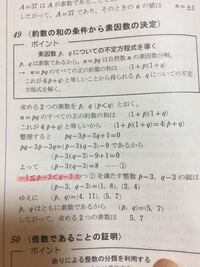 A=37 が素数であることは
したがって，A=37 よって，そのときの n の値は n=±3
49 〈約数の和の条件から素因数の決定〉
ポイント
素因数 p, q についての不定方程式を導く
p, q は素数であるから，n=pq は自然数 n の素因数分解。
→ n=pq のすべての正の約数の和は (1+p)(1+q)
これが 4(p+q) と等しいことから得られる p, q についての不
定方程式を解く。
求める2つの素数を p, q (p<q) とおく。
n=pq のすべての正の約数の和は (1+p)(1+q)
これが 4(p+q) と等しいから (1+p)(1+q)=4(p+q)
整理すると pq-3p-3q+1=0
pq-3p-3q=(p-3)(q-3)-9 であるから
(p-3)(q-3)-9+1=0
よって (p-3)(q-3)=8 ……①
-1≦p-3<q-3 かつ①を満たす整数 p-3, q-3 の組は
(p-3, q-3)=(1, 8), (2, 4)
ゆえに (p, q)=(4, 11), (5, 7)
p, q はともに素数であるから (p, q)=(5, 7)
したがって，求める2つの素数は 5, 7
50 〈倍数であることの証明〉
ポイント
余りによる整数の分類を利用する